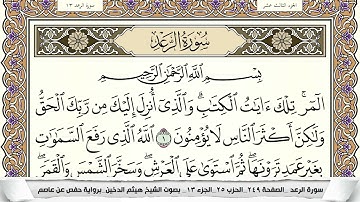 الجزء الثالث عشر
سورة الرعد ١٣
سُورَةُ الرَّعْدِ
بِسْمِ اللَّهِ الرَّحْمَٰنِ الرَّحِيمِ
الٓمٓر ۚ تِلْكَ ءَايَٰتُ ٱلْكِتَٰبِ ۗ وَٱلَّذِىٓ أُنزِلَ إِلَيْكَ مِن رَّبِّكَ ٱلْحَقُّ
وَلَٰكِنَّ أَكْثَرَ ٱلنَّاسِ لَا يُؤْمِنُونَ ١ ٱللَّهُ ٱلَّذِى رَفَعَ ٱلسَّمَٰوَٰتِ
بِغَيْرِ عَمَدٍ تَرَوْنَهَا ۖ ثُمَّ ٱسْتَوَىٰ عَلَى ٱلْعَرْشِ ۖ وَسَخَّرَ ٱلشَّمْسَ وَٱلْقَمَرَ ۖ
سورة الرعد _الصفحة ٢٤٩_ الحزب ٢٥_ الجزء ١٣_ بصوت الشيخ هيثم الدخين_ برواية حفص عن عاصم